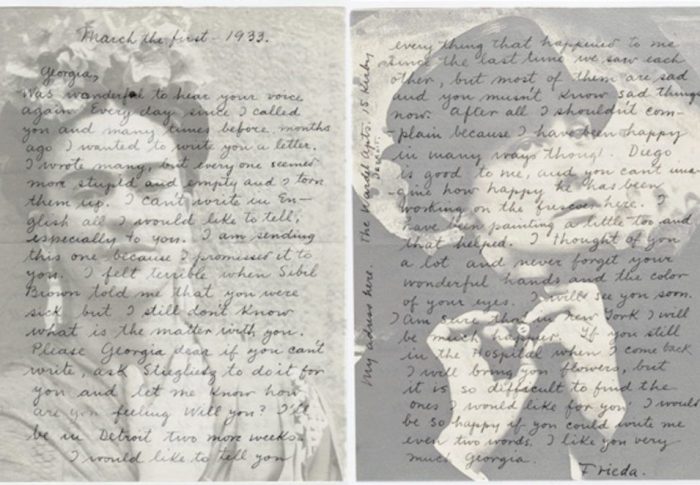 March the first - 1933.
Georgia,
Was wonderful to hear your voice
again. Every day since I called
you and many times before months
ago I wanted to write you a letter.
I wrote many, but every one seemed
more stupid and empty and I torn
them up. I can't write in En-
glish all I would like to tell,
especially to you. I am sending
this one because I promised it to
you. I felt terrible when Sibil
Brown told me that you were
sick but I still don't know
what is the matter with you.
Please Georgia dear if you can't
write, ask Stieglisz to do it for
you and let me know how
are you feeling will you? I'll
be in Detroit two more weeks.
I would like to tell you
every thing that happened to me
since the last time we saw each
other, but most of them are sad
and you musn't know sad things
now. After all I shouldn't com-
plain because I have been happy
in many ways though. Diego
is good to me, and you can't ima-
gine how happy he has been
working on the frescoes here. I
have been painting a little too and
that helped. I thought of you
a lot and never forget your
wonderful hands and the color
of your eyes. I will see you soon.
I am sure that in New York I will
be much happier. If you still
in the Hospital when I come back
I will bring you flowers, but
it is so difficult to find the
ones I would like for you. I would
be so happy if you could write me
even two words. I like you very
much Georgia.
Frieda.
My adress here. The Wardell Apts. 15 Kirby